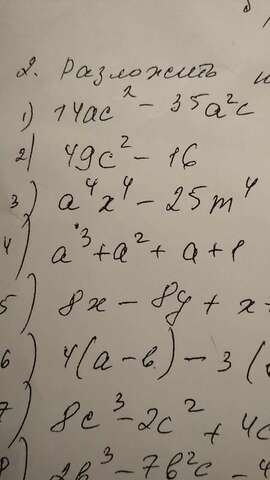 2. Разложить
1) 14ac² - 35a²c
2) 49c² - 16
3) a⁴x⁴ - 25m⁴
4) a³ + a² + a + 1
5) 8x - 8y + x
6) 4(a-b) - 3(
7) 8c³ - 2c² + 4c
8) 2b³ - 7b²c - 4